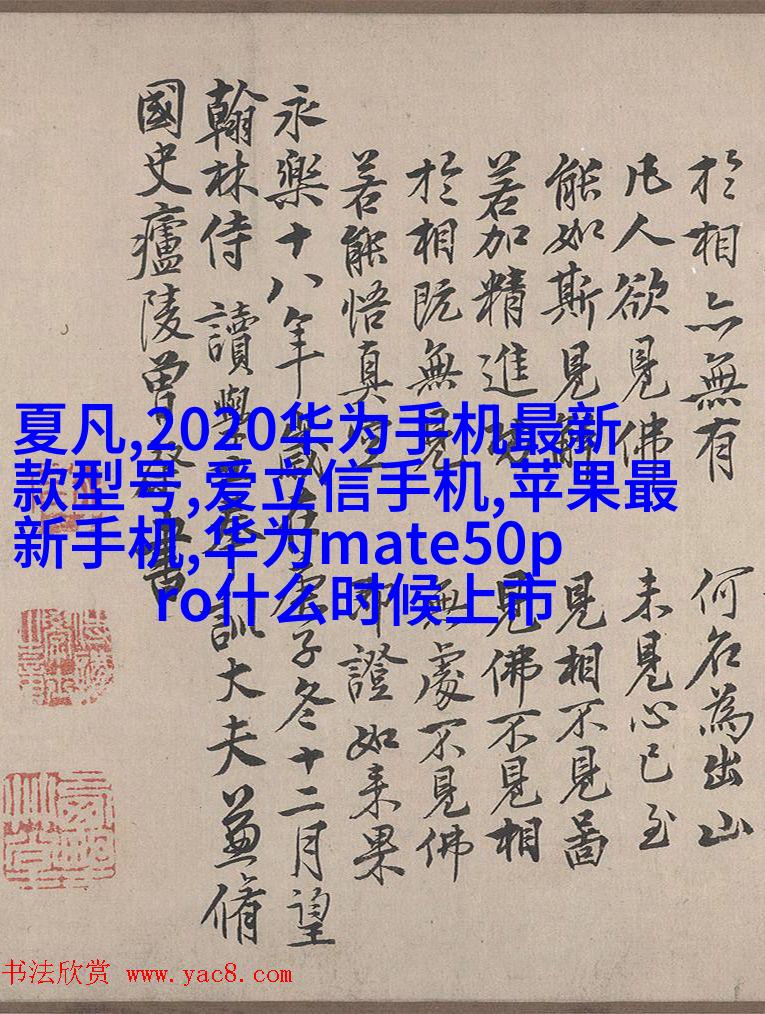 於相亦無有 何名為出山
凡人欲見佛 未見心已至
能如斯見解 見相不見啚
若加精進功 見佛不見相
於相既無見 無處不見佛
若能悟真空 即證如来果
永樂十八年歲在庚子冬十二月望
翰林侍讀學士奉訓大夫兼脩
國史廬陵曾棨書
夏凡,2020华为手机最新
款型号,爱立信手机,苹果最
新手机,华为mate50p
ro什么时候上市
书法欣赏 www.yac8.com